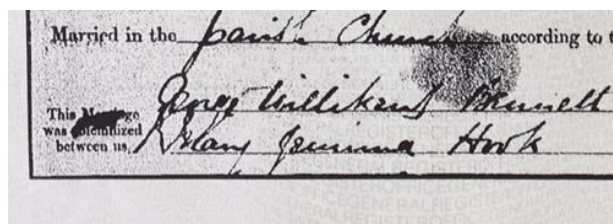 Married in the Parish Church according to t
This Marriage
was solemnized
between us,
George Bennett
Mary Jemima Hook